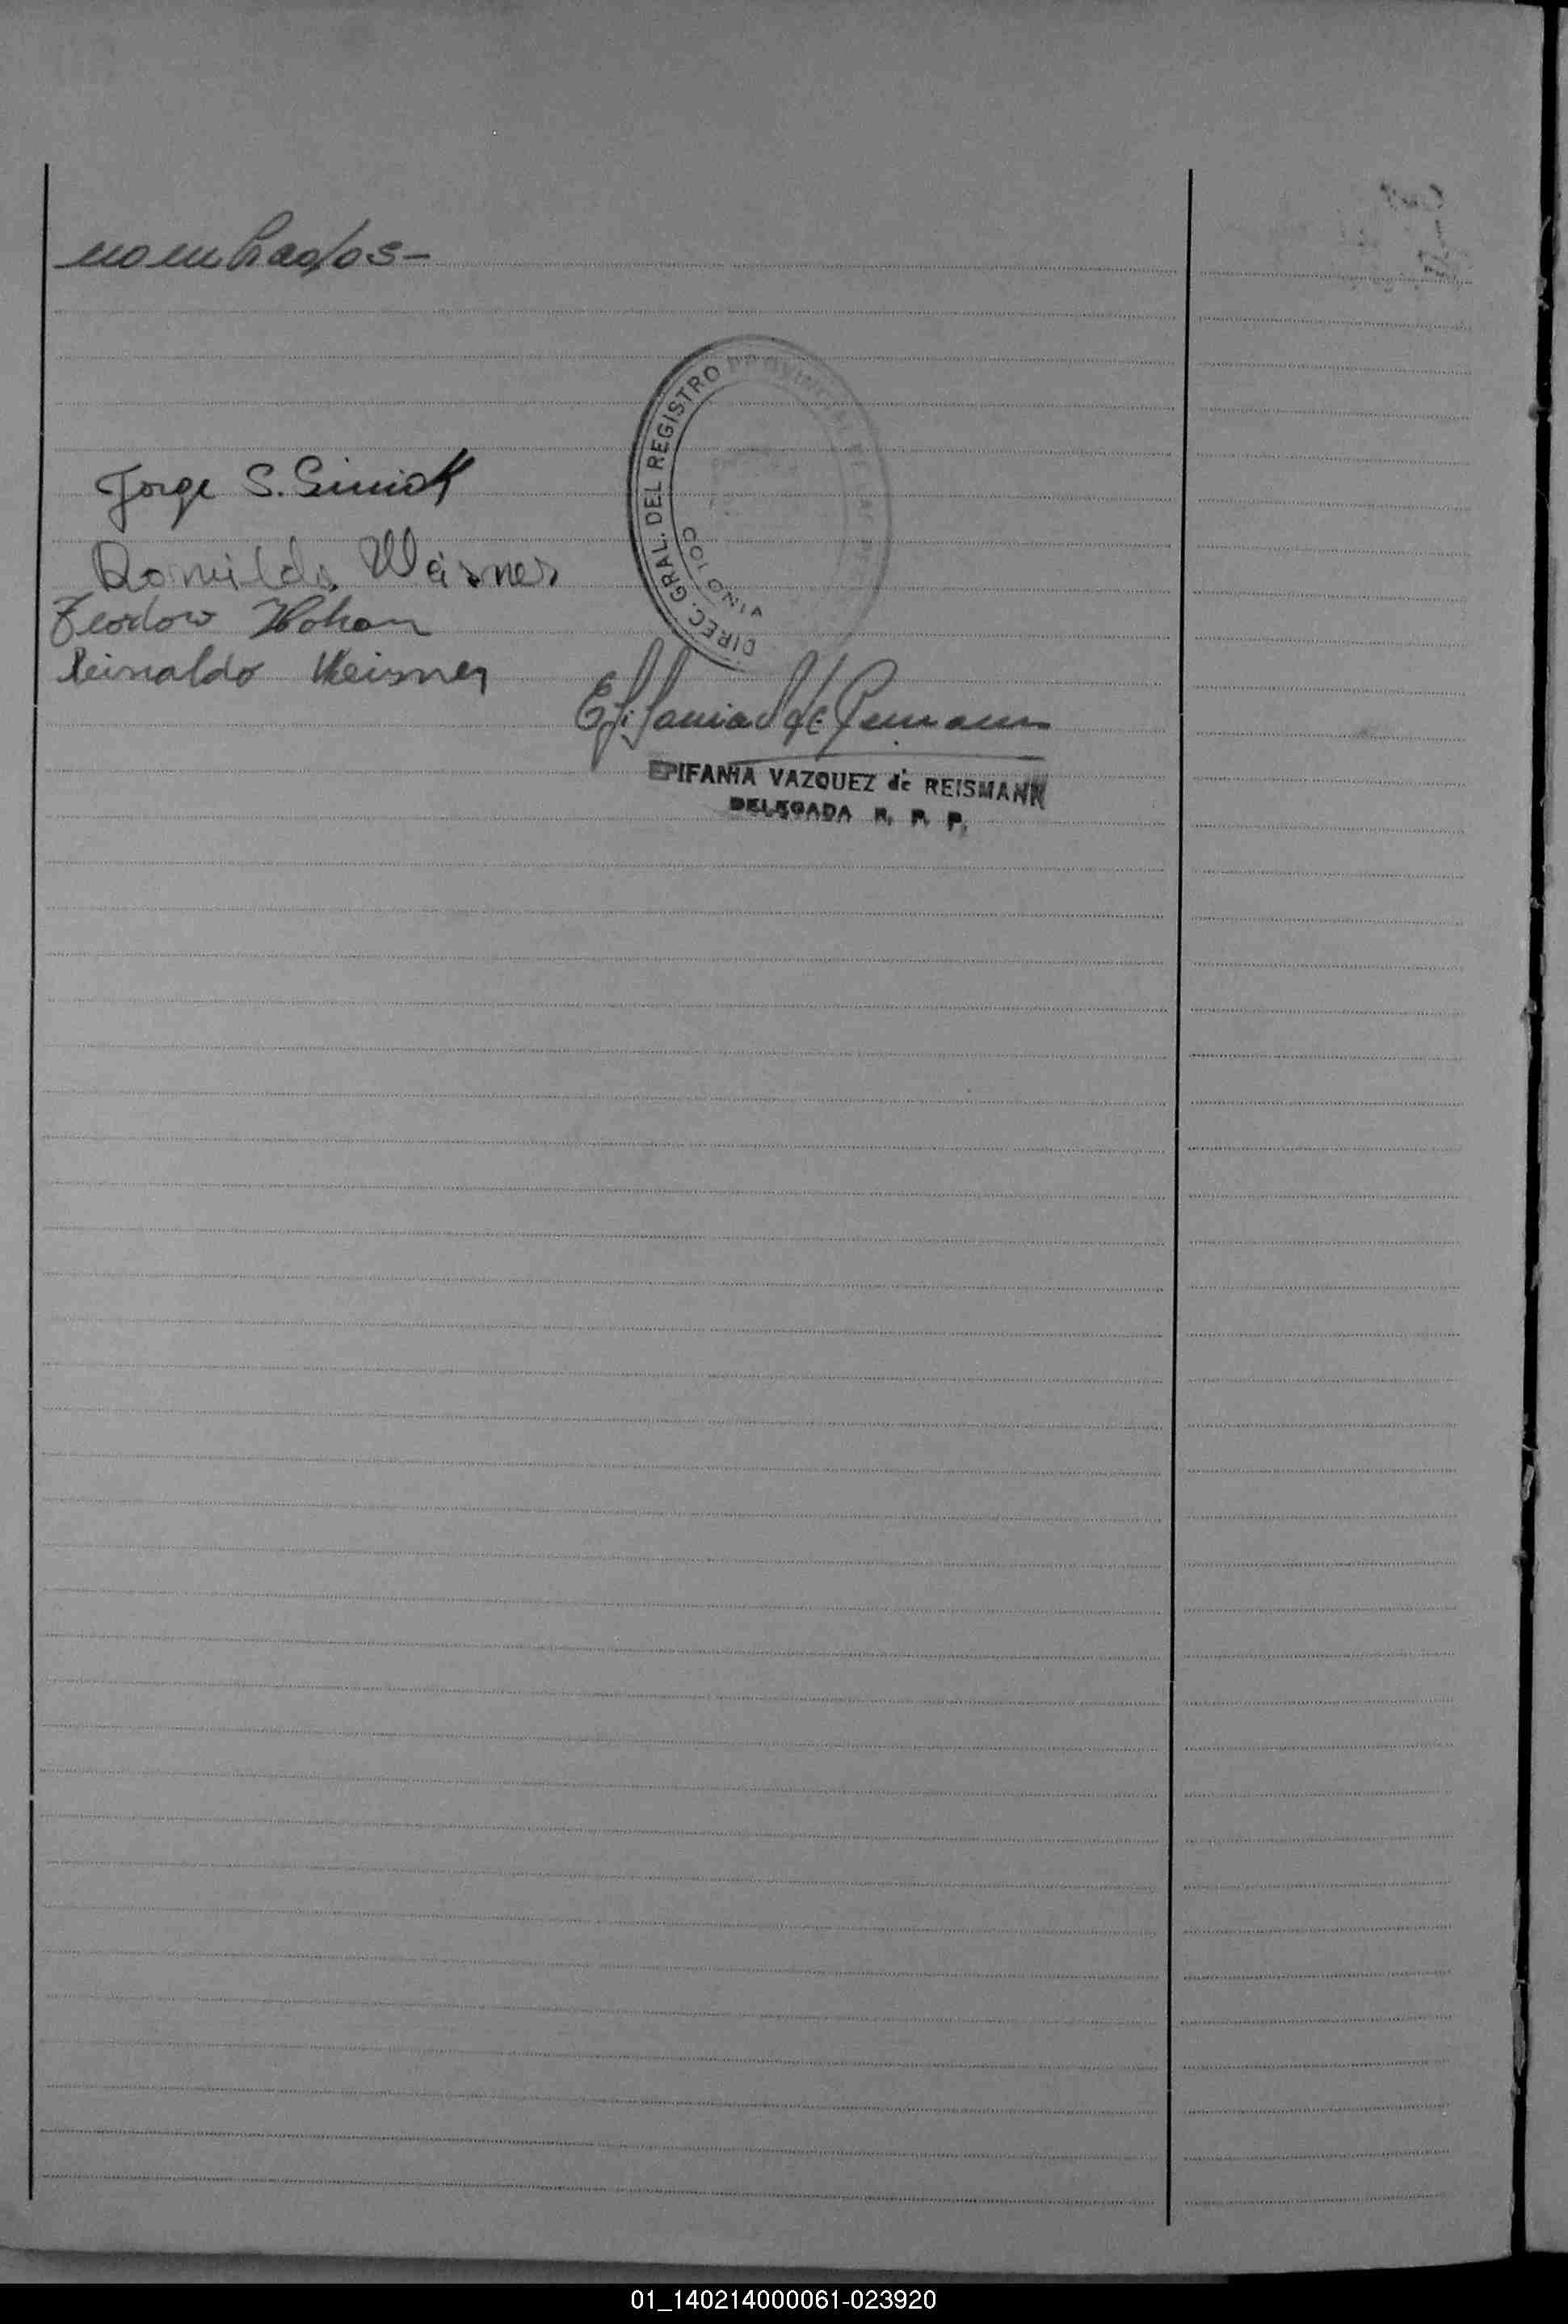 nombrados-
Jorge S. Simick
Romilda Weisner
Teodoro Hohan
Reinaldo Weisner
DIREC. GRAL. DEL REGISTRO PROVINCIAL DE LAS
Epifania V de Reismann
EPIFANIA VAZQUEZ de REISMANN
DELEGADA R. P. P.
01_140214000061-023920